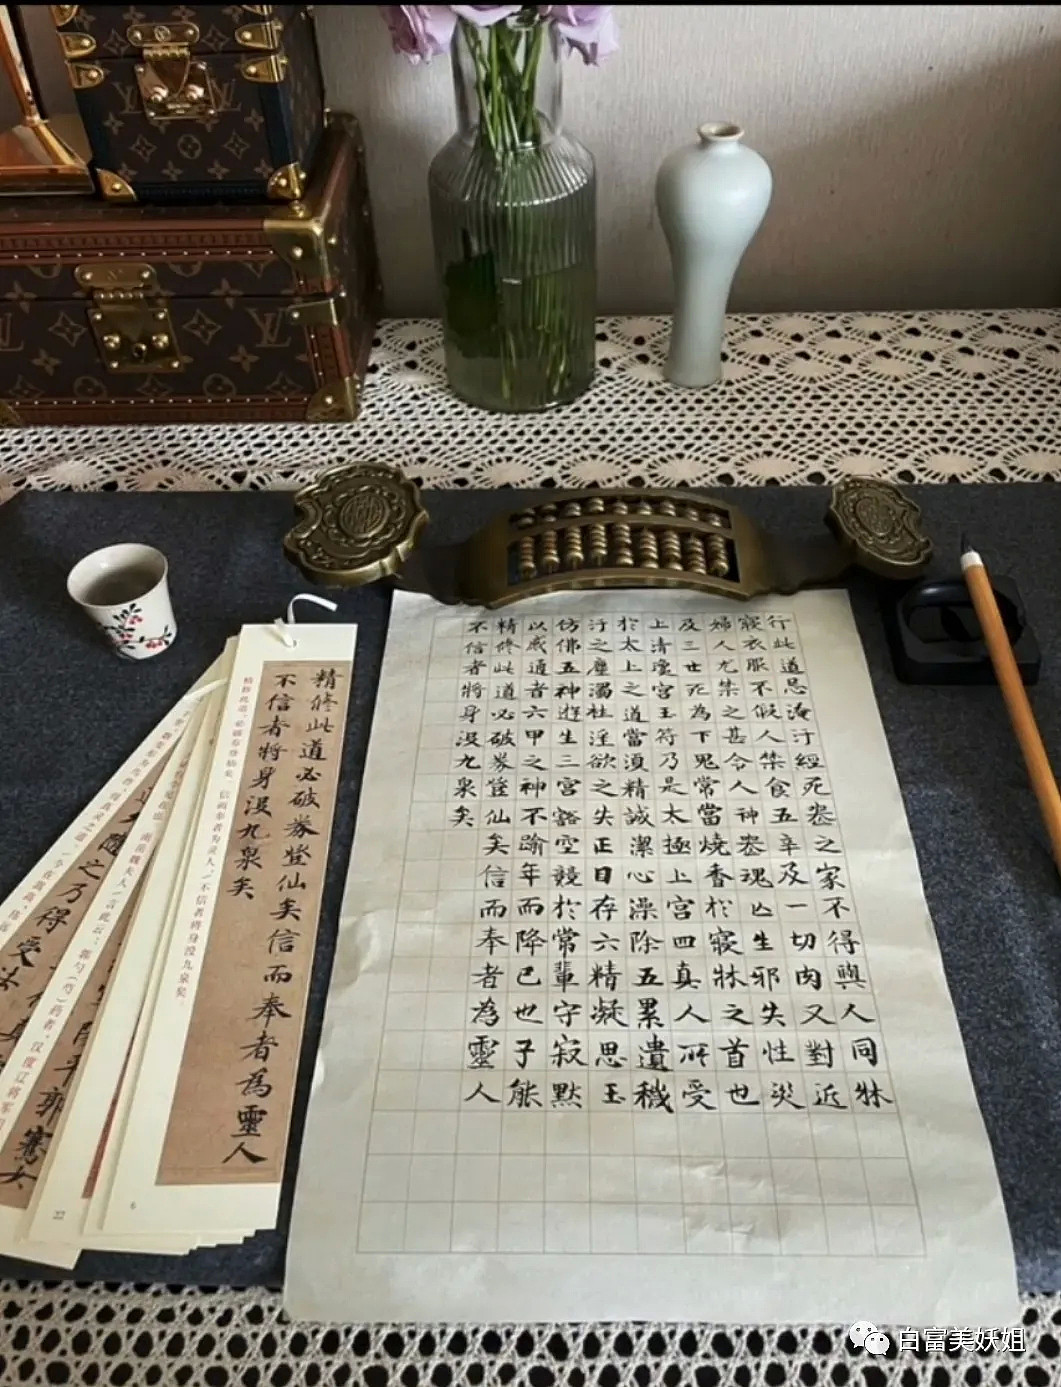 行此道忌淹汙經死喪之家不得與人同牀
寢衣服不假人禁食五辛及一切肉又對近
婦人尤禁之甚令人神喪魂亡生邪失性災
及三世死為下鬼常當燒香於寢牀之首也
上清瓊宮玉符乃是太極上宮四真人所受
於太上之道當須精誠潔心澡除五累遺穢
汙之塵濁杜淫欲之失正目存六精凝思玉
仿佛五神遊生三宮豁空競於常輩守寂默
以感通者六甲之神不踰年而降已也子能
精修此道必破券登仙矣信而奉者為靈人
不信者將身沒九泉矣
精修此道必破券登仙矣信而奉者為靈人
不信者將身沒九泉矣
精修此道,必破券登仙矣。信而奉者为灵人,不信者将身没九泉矣。
6
隨之乃得受
22
白富美妖姐